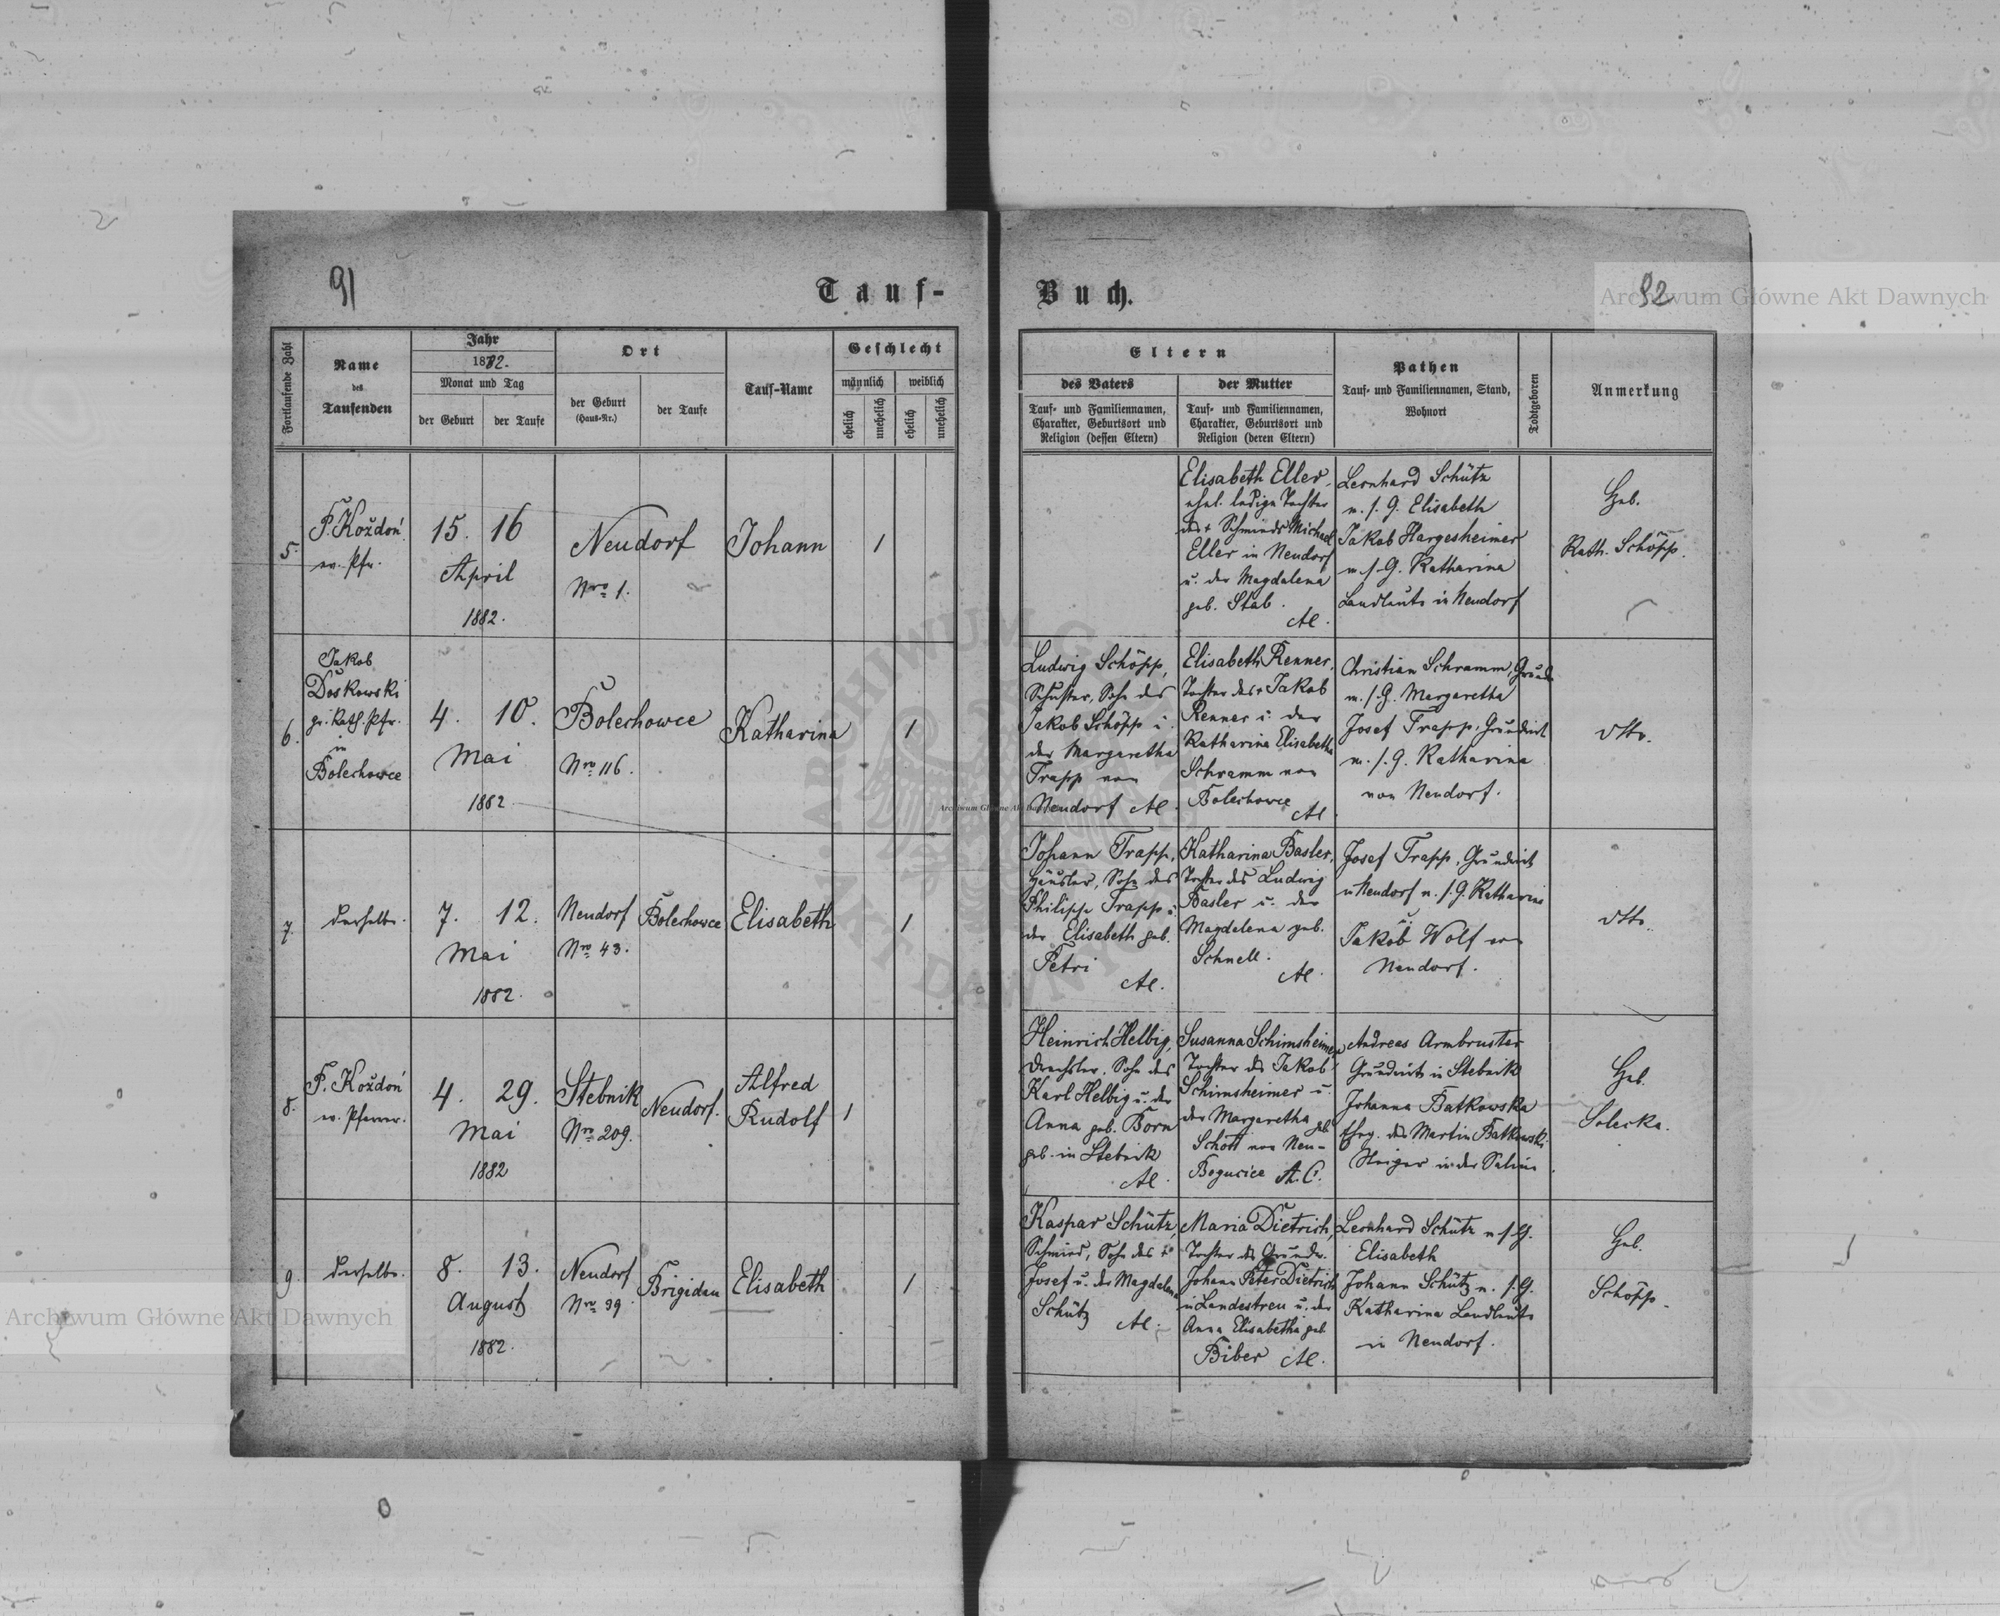 91
Tauf-
Fortlaufende Zahl
Name
des
Taufenden
Jahr
1882.
Monat und Tag
der Geburt
der Taufe
Ort
der Geburt
(Haus-Nr.)
der Taufe
Tauf-Name
Geschlecht
männlich
weiblich
ehelich
unehelich
ehelich
unehelich
5.
F. Koždoń
ev. Pfr.
15. 16
April
1882.
Neudorf
Nro 1.
Johann
1
6.
Jakob
Doskowski
gr. kath. Pfr.
in
Bolechowce
4. 10.
Mai
1882
Bolechowce
Nro 116.
Katharina
1
7.
Derselbe.
7. 12.
Mai
1882.
Neudorf
Nro 43.
Bolechowce
Elisabeth
1
8.
F. Koždoń
ev. Pfarrer.
4. 29.
Mai
1882
Stebnik
Nro 209.
Neudorf.
Alfred
Rudolf
1
9.
Derselbe.
8. 13.
August
1882.
Neudorf
Nro 39.
Brigidau
Elisabeth
1
92
Buch.
Eltern
des Vaters
Tauf- und Familiennamen,
Charakter, Geburtsort und
Religion (dessen Eltern)
der Mutter
Tauf- und Familiennamen,
Charakter, Geburtsort und
Religion (deren Eltern)
Pathen
Tauf- und Familiennamen, Stand,
Wohnort
Todtgeboren
Anmerkung
Elisabeth Eller,
ehel. ledige Tochter
des + Schmieds Michael
Eller in Neudorf
u. der Magdalena
geb. Stab.
AC.
Leonhard Schütz
u. s. G. Elisabeth
Jakob Hargesheimer
u. s. G. Katharina
Landleute in Neudorf
Heb.
Kath. Schöpp.
Ludwig Schöpp,
Schuster, Sohn des
Jakob Schöpp u.
der Margaretha
Trapp von
Neudorf AC.
Elisabeth Renner,
Tochter des + Jakob
Renner u. der
Katharina Elisabetha
Schramm von
Bolechowce
AC.
Christian Schramm, Grundw
u. s. G. Margaretha
Josef Trapp, Grundwirt
u. s. G. Katharina
von Neudorf.
dtto.
Johann Trapp,
Häusler, Sohn des
Philipp Trapp u.
der Elisabeth geb.
Petri
AC.
Katharina Basler,
Tochter des Ludwig
Basler u. der
Magdalena geb.
Schnell.
AC.
Josef Trapp, Grundwirt
in Neudorf u. s. G. Katharina
u
Jakob Wolf von
Neudorf.
dtto.
Heinrich Helbig,
Drechsler, Sohn des
Karl Helbig u. der
Anna geb. Born
geb. in Stebnik
AC.
Susanna Schimsheimer
Tochter des Jakob
Schimsheimer u.
der Margaretha geb.
Schott von Neu-
Bogucice A. C.
Andreas Armbruster
Grundwirt in Stebnik
Johanna Batkowska
Eheg. des Martin Batkowski
Steiger in der Saline
Heb.
Solecka.
Kaspar Schütz,
Schmied, Sohn des +
Josef u. der Magdalena
Schütz AC.
Maria Dietrich,
Tochter des Grundw.
Johann Peter Dietrich
in Landestreu u. der
Anna Elisabetha geb.
Biber AC.
Leonhard Schütz u. s. G.
Elisabeth
Johann Schütz u. s. G.
Katharina Landleute
in Neudorf.
Heb.
Schöpp.
Archiwum Główne Akt Dawnych
Archiwum Główne Akt Dawnych
Archiwum Główne Akt Dawnych